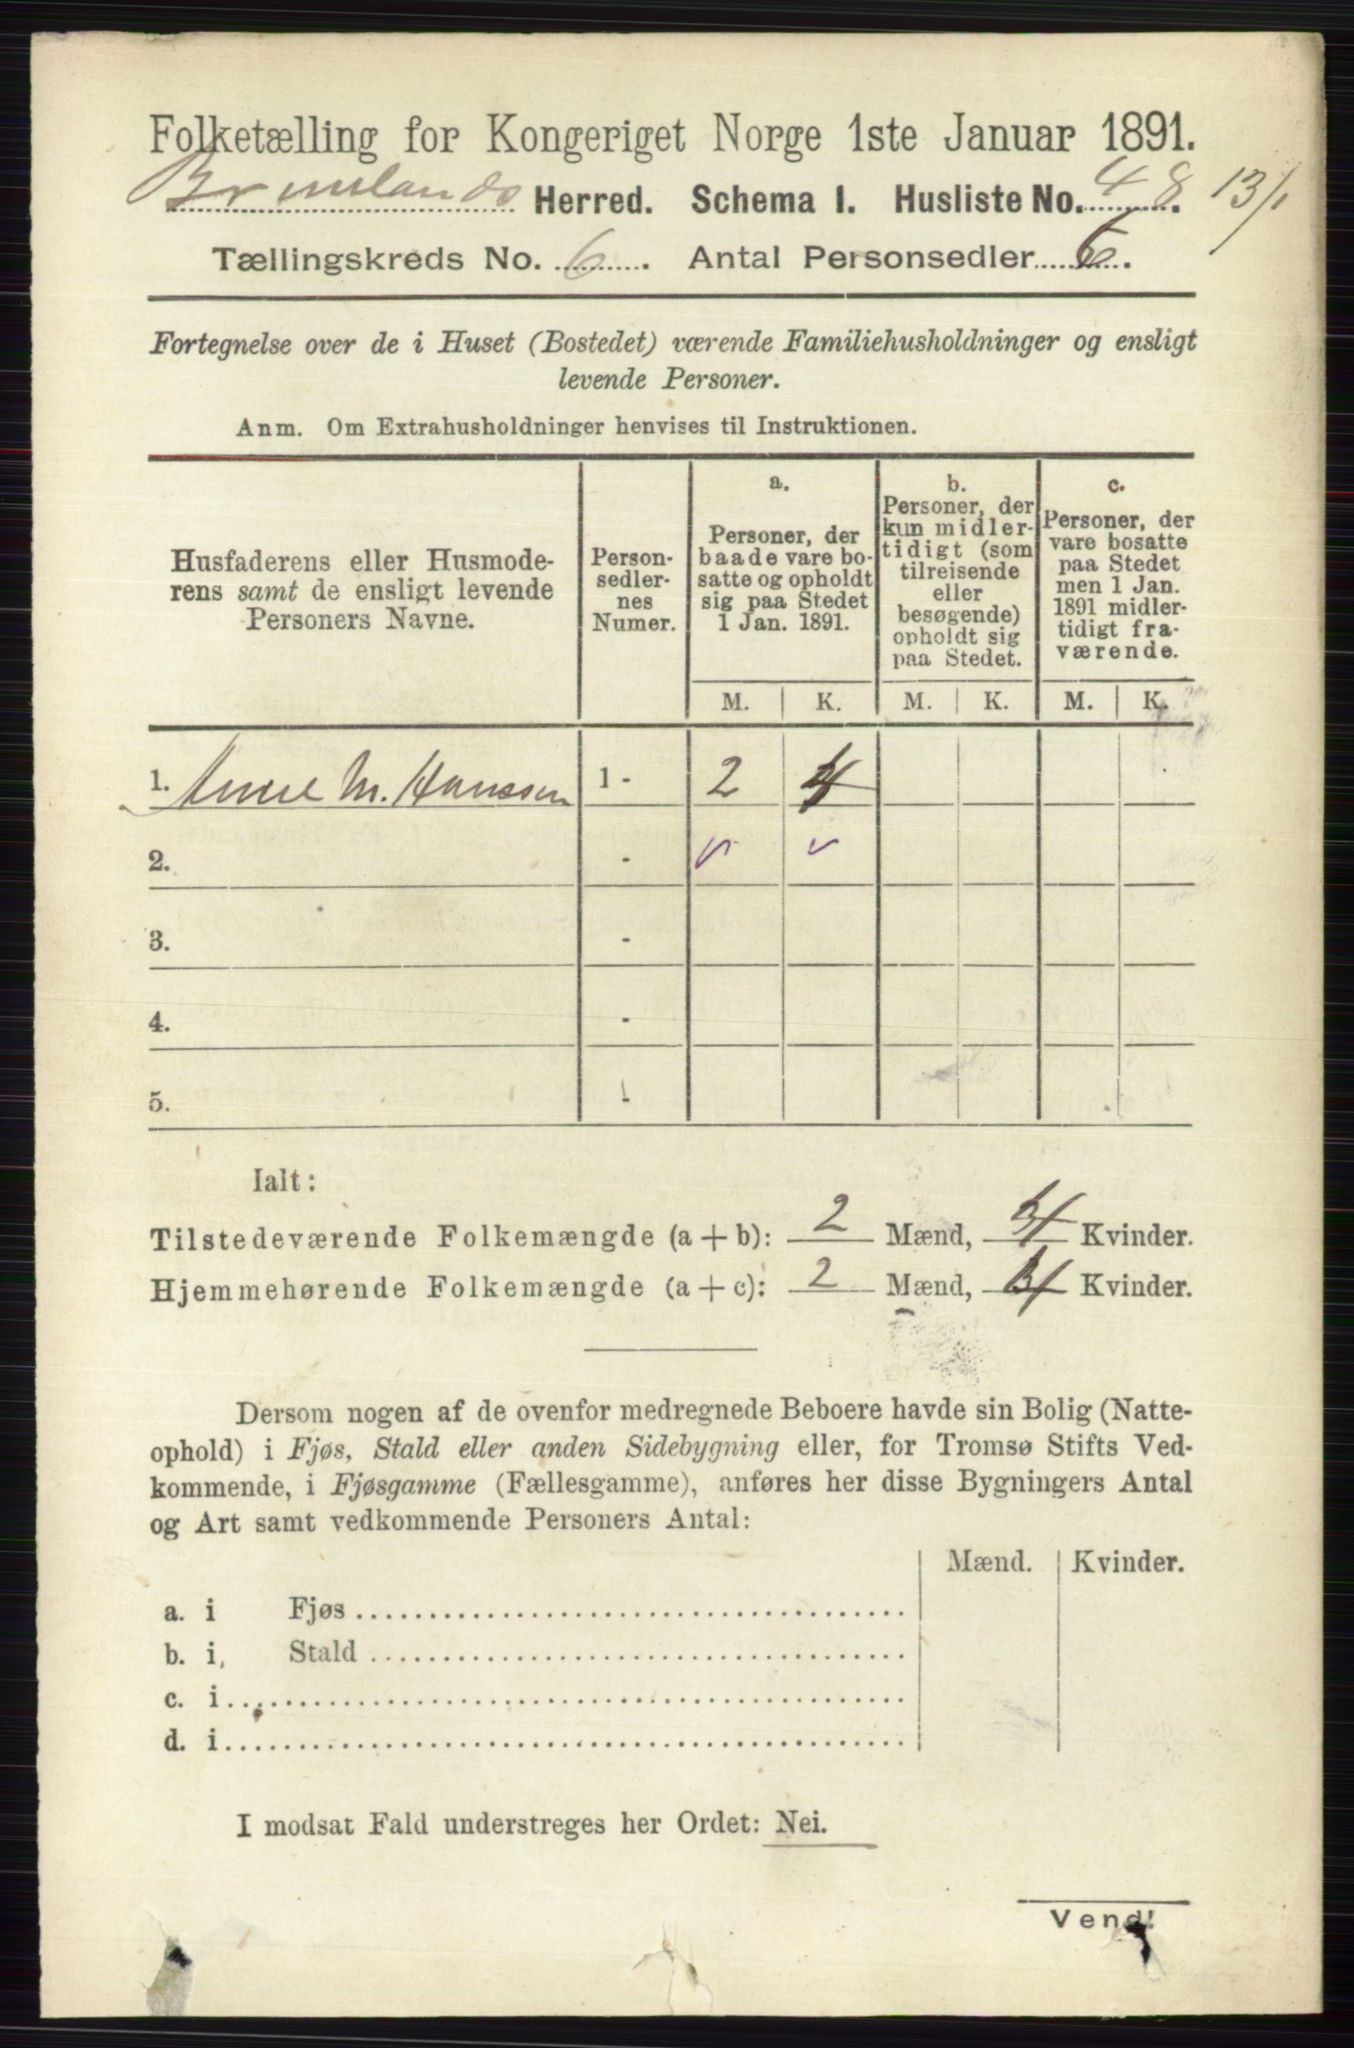 Folketælling for Kongeriget Norge 1ste Januar 1891.
Brunlands Herred. Schema I. Husliste No. 48. 13/1
Tællingskreds No. 6. Antal Personsedler 6.
Fortegnelse over de i Huset (Bostedet) værende Familiehusholdninger og ensligt
levende Personer.
Anm. Om Extrahusholdninger henvises til Instruktionen.
Husfaderens eller Husmode-
rens samt de ensligt levende
Personers Navne.
Person-
sedler-
nes
Numer.
a.
Personer, der
baade vare bo-
satte og opholdt
sig paa Stedet
1 Jan. 1891.
b.
Personer, der
kun midler-
tidigt (som
tilreisende
eller
besøgende)
opholdt sig
paa Stedet.
c.
Personer, der
vare bosatte
paa Stedet
men 1 Jan.
1891 midler-
tidigt fra-
værende.
M. K. M. K. M. K.
1. Anne M. Hanssen 1 - 2 4
2. -
3. -
4. -
5. -
Ialt:
Tilstedeværende Folkemængde (a + b): 2 Mænd, 4 Kvinder.
Hjemmehørende Folkemængde (a + c): 2 Mænd, 4 Kvinder.
Dersom nogen af de ovenfor medregnede Beboere havde sin Bolig (Natte-
ophold) i Fjøs, Stald eller anden Sidebygning eller, for Tromsø Stifts Ved-
kommende, i Fjøsgamme (Fællesgamme), anføres her disse Bygningers Antal
og Art samt vedkommende Personers Antal:
Mænd. Kvinder.
a. i Fjøs
b. i, Stald
c. i
d. i
I modsat Fald understreges her Ordet: Nei.
Vend!